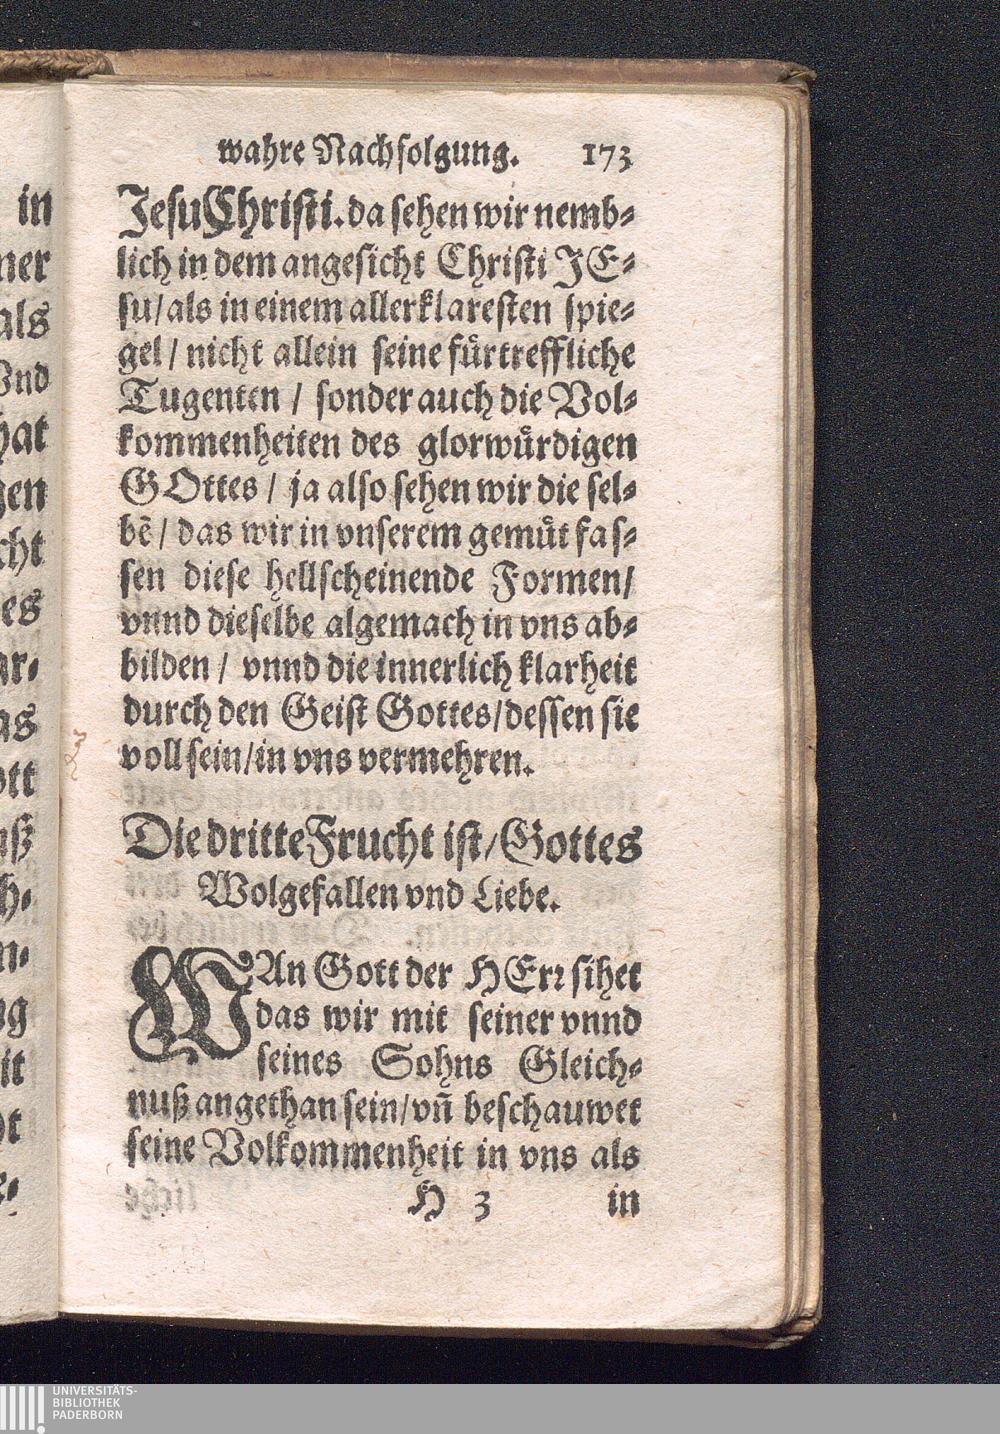 wahre Nachfolgung. 173
Jesu Christi. da sehen wir nemb-
lich in dem angesicht Christi JE-
su / als in einem allerklaresten spie-
gel / nicht allein seine fürtreffliche
Tugenten / sonder auch die Vol-
kommenheiten des glorwürdigen
GOttes / ja also sehen wir die sel-
bē / das wir in vnserem gemüt fas-
sen diese hellscheinende Formen /
vnnd dieselbe algemach in vns ab-
bilden / vnnd die innerlich klarheit
durch den Geist Gottes / dessen sie
voll sein / in vns vermehren.
Die dritte Frucht ist / Gottes
Wolgefallen vnd Liebe.
WAn Gott der HErr sihet
das wir mit seiner vnnd
seines Sohns Gleich-
nuß angethan sein / vñ beschauwet
seine Volkommenheit in vns als
H 3 in
in
ner
als
Vnd
hat
gen
cht
es
ar-
as
ott
aß
ch-
n-
ng
it
ht
e-
UNIVERSITÄTS-
BIBLIOTHEK
PADERBORN